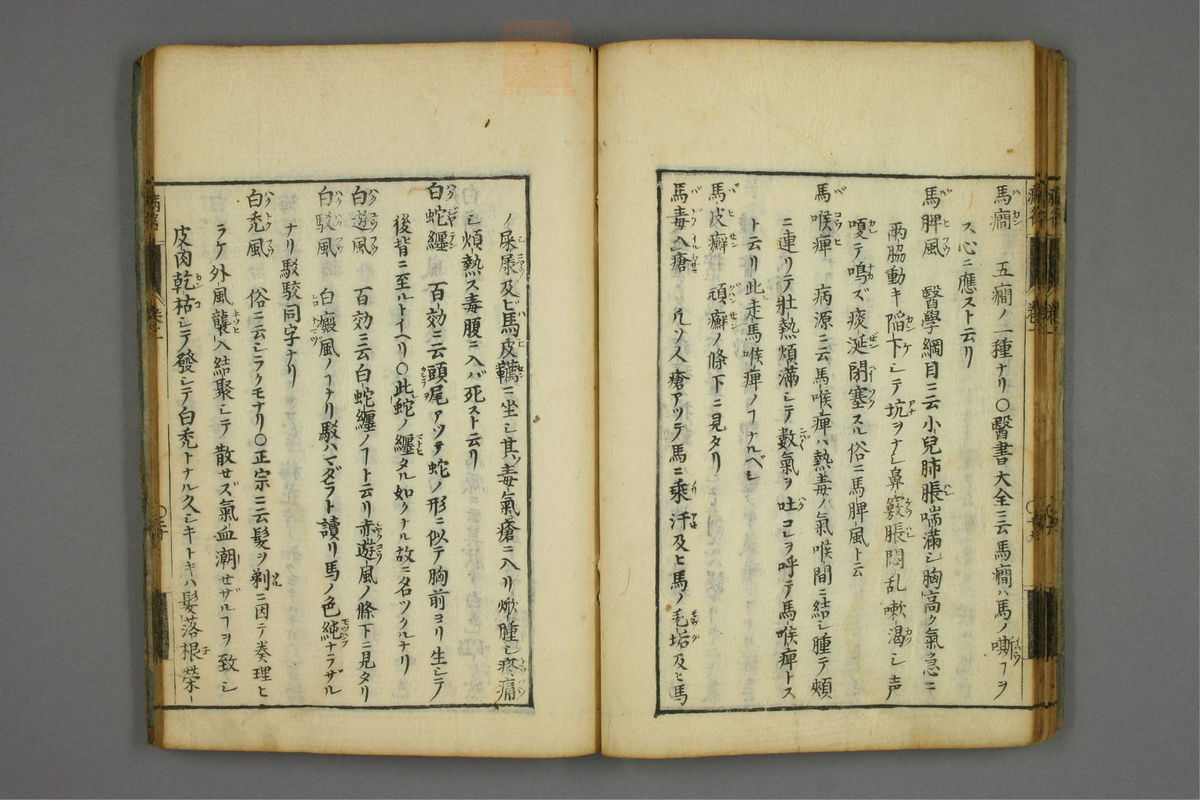 馬癇 五癇ノ一種ナリ〇醫書大全ニ云馬癇ハ馬ノ嘶フヲ
ス心ニ應スト云リ
馬脾風 醫學綱目ニ云小兒肺脹喘滿シ胸高ク氣急ニ
兩脇動キ陷下シテ坑ヲナシ鼻竅脹悶乱嗽渇シ声
嗄テ鳴ズ痰涎閉塞スル俗ニ馬脾風ト云
馬喉痺 病源ニ云馬喉痺ハ熱毒ノ氣喉間ニ結シ腫テ頰
ニ連リテ壮熱煩滿シテ數氣ヲ吐コレヲ呼テ馬喉痺トス
ト云リ此走馬喉痺ノフナルベシ
馬皮癬 頑癬ノ條下ニ見タリ
馬毒入瘡 凡ソ人瘡アツテ馬ニ乘汗及ヒ馬ノ毛垢及ヒ馬
ノ屎尿及ビ馬皮韉ニ坐シ其毒氣瘡ニ入リ焮腫シ疼痛
シ煩熱ス毒腹ニ入バ死スト云リ
白蛇纏 百効ニ云頭尾アツヲ蛇ノ形ニ似テ胸前ヨリ生シテ
後背ニ至ルトイヘリ〇此蛇ノ纏タル如クナル故ニ名ツクルナリ
白遊風 百効ニ云白蛇纏ノフト云リ赤遊風ノ條下ニ見タリ
白駁風 白癜風ノフナリ駁ハマダラト讀リ馬ノ色純ナラザル
ナリ駁駮同字ナリ
白禿風 俗ニ云シラクモナリ〇正宗ニ云髮ヲ剃ニ因テ奏理ヒ
ラケ外風襲入結聚シテ散セズ氣血潮セザルフヲ致シ
皮肉乾枯シテ發シテ白禿トナル久シキトキハ髮落根榮